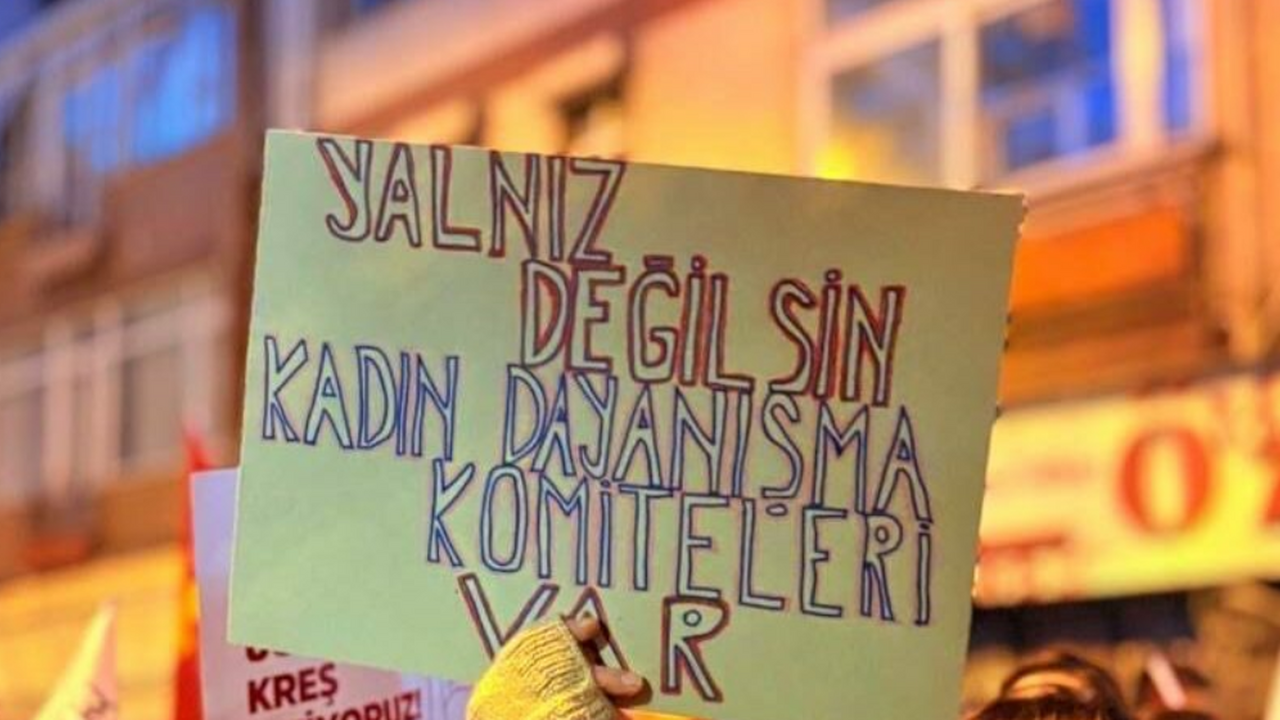 YALNIZ
DEĞİLSİN
KADIN DAYANIŞMA
KOMİTELERİ
VAR
KREŞ